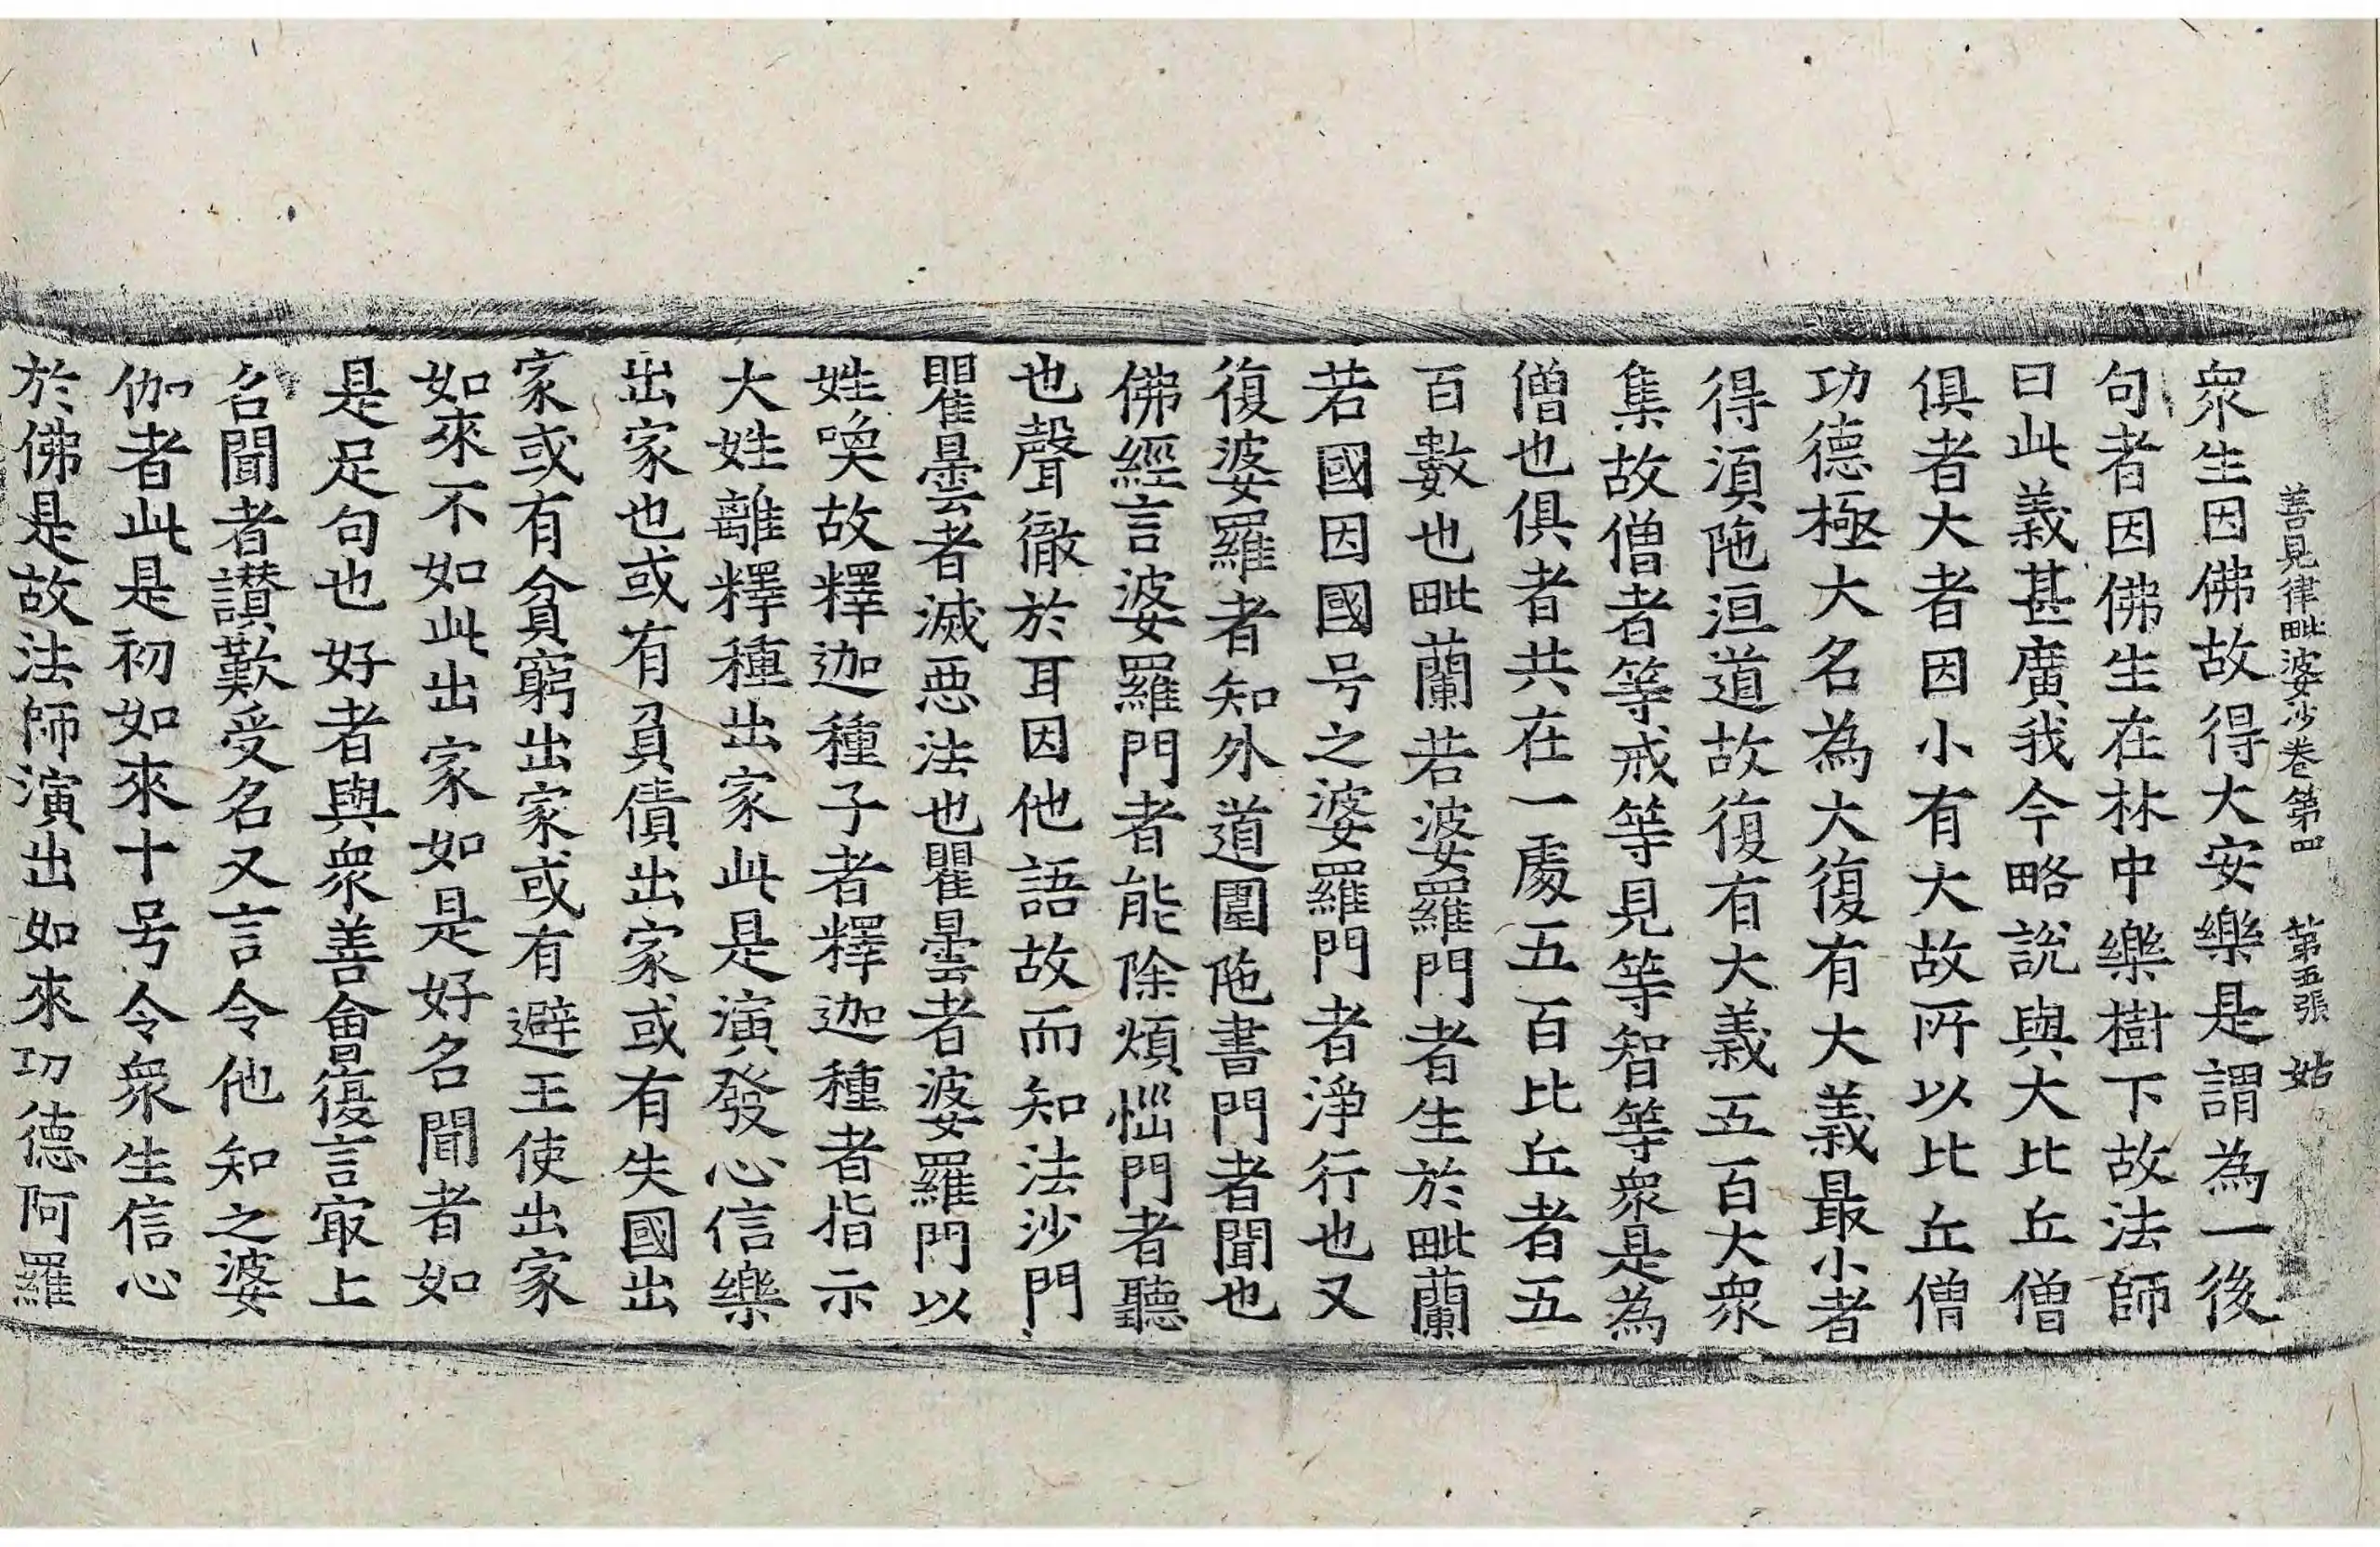 善見律毗婆沙卷第四　第五張　姑
衆生因佛故得大安樂是謂為一後
句者因佛生在林中樂樹下故法師
曰此義甚廣我今略說與大比丘僧
俱者大者因小有大故所以比丘僧
功德極大名為大復有大義最小者
得湏陁洹道故復有大義五百大衆
集故僧者等戒等見等智等衆是為
僧也俱者共在一處五百比丘者五
百數也毗蘭若婆羅門者生於毗蘭
若國因國号之婆羅門者淨行也又
復婆羅者知外道圍陁書門者聞也
佛經言婆羅門者能除煩惱門者聽
也聲徹於耳因他語故而知法沙門
瞿曇者滅惡法也瞿曇者婆羅門以
姓喚故釋迦種子者釋迦種者指示
大姓離釋種出家此是演發心信樂
出家也或有負債出家或有失國出
家或有貧窮出家或有避王使出家
如來不如此出家如是好名聞者如
是足句也好者與衆善會復言㝡上
名聞者讃歎受名又言令他知之婆
伽者此是初如來十号令衆生信心
於佛是故法師演出如來功德阿羅